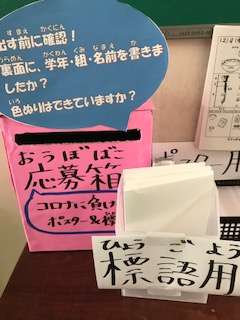 出す前に確認！
裏面に、学年・組・名前を書きま
したか？
色ぬりはできていますか？
おうぼばこ
応募箱
コロナに負け
ポスター&標
ポスター用
ひょうごよう
標語用